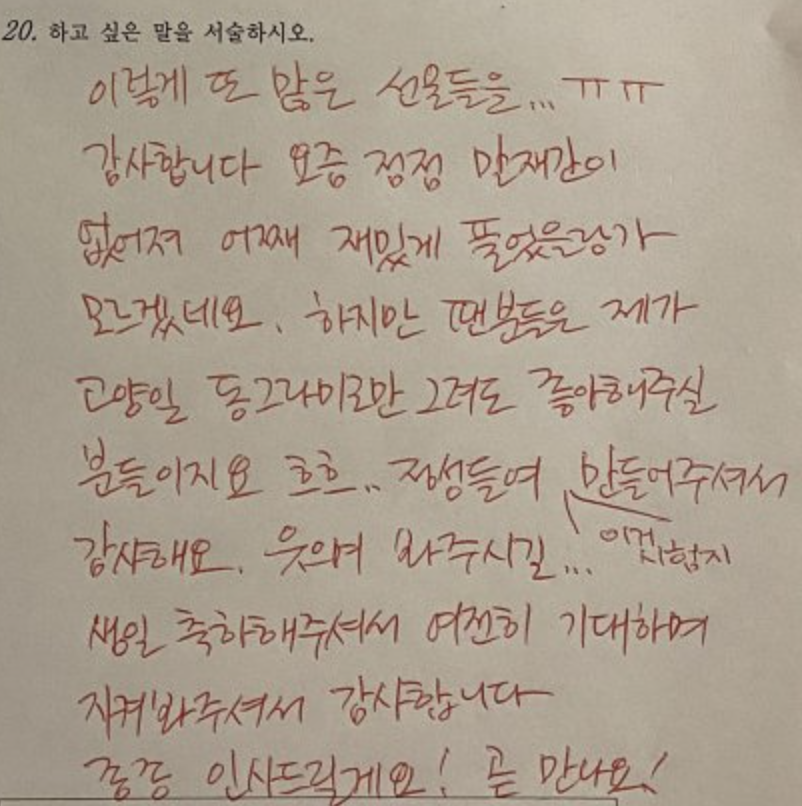 20. 하고 싶은 말을 서술하시오.
이렇게 또 많은 선물들을... ㅠㅠ
감사합니다 요즘 점점 말재간이
없어져 어째 재밌게 풀었을랑가
모르겠네요. 하지만 팬분들은 제가
고양일 동그라미로만 그려도 좋아해주실
분들이지요 흐흐.. 정성들여 만들어주셔서
이 시험지
감사해요. 웃으며 봐주시길...
생일 축하해주셔서 여전히 기대하며
지켜봐주셔서 감사합니다
종종 인사드릴게요! 곧 만나요!